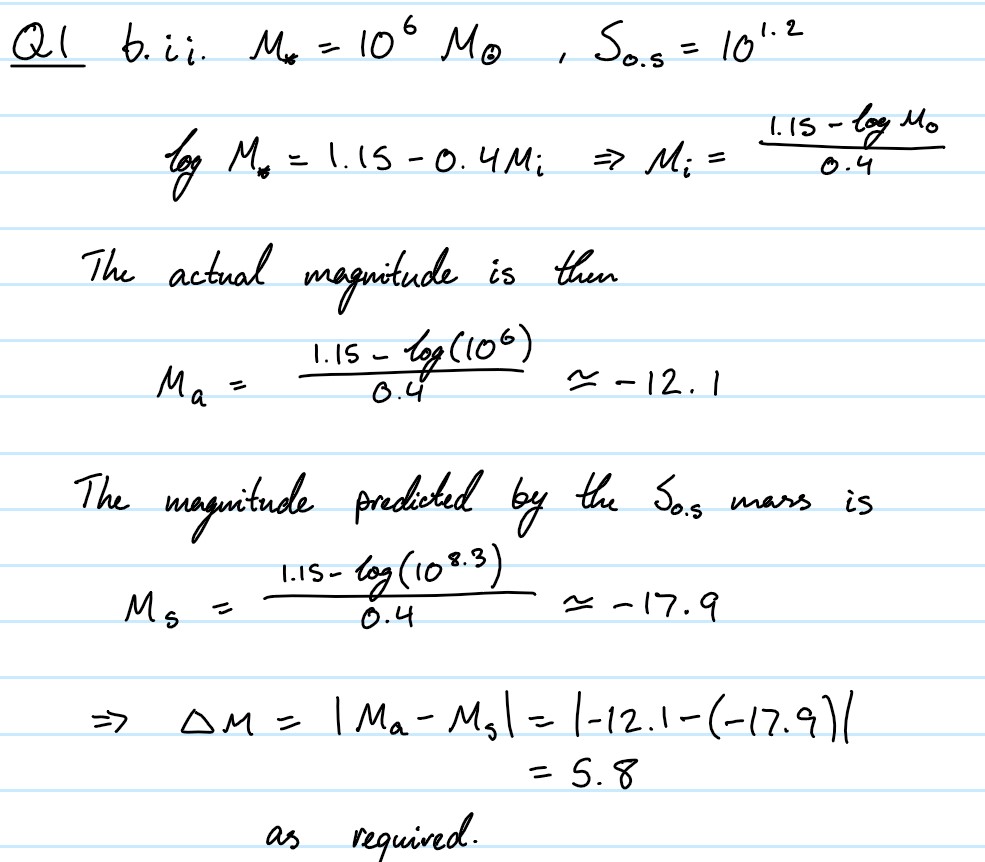 Q1 b.ii. M* = 10^6 M⊙ , S0.5 = 10^1.2
log M* = 1.15 - 0.4Mi ⇒ Mi = (1.15 - log M⊙)/0.4
The actual magnitude is then
Ma = (1.15 - log(10^6))/0.4 ≃ -12.1
The magnitude predicted by the S0.5 mass is
Ms = (1.15 - log(10^8.3))/0.4 ≃ -17.9
⇒ ΔM = |Ma - Ms| = |-12.1-(-17.9)|
= 5.8
as required.